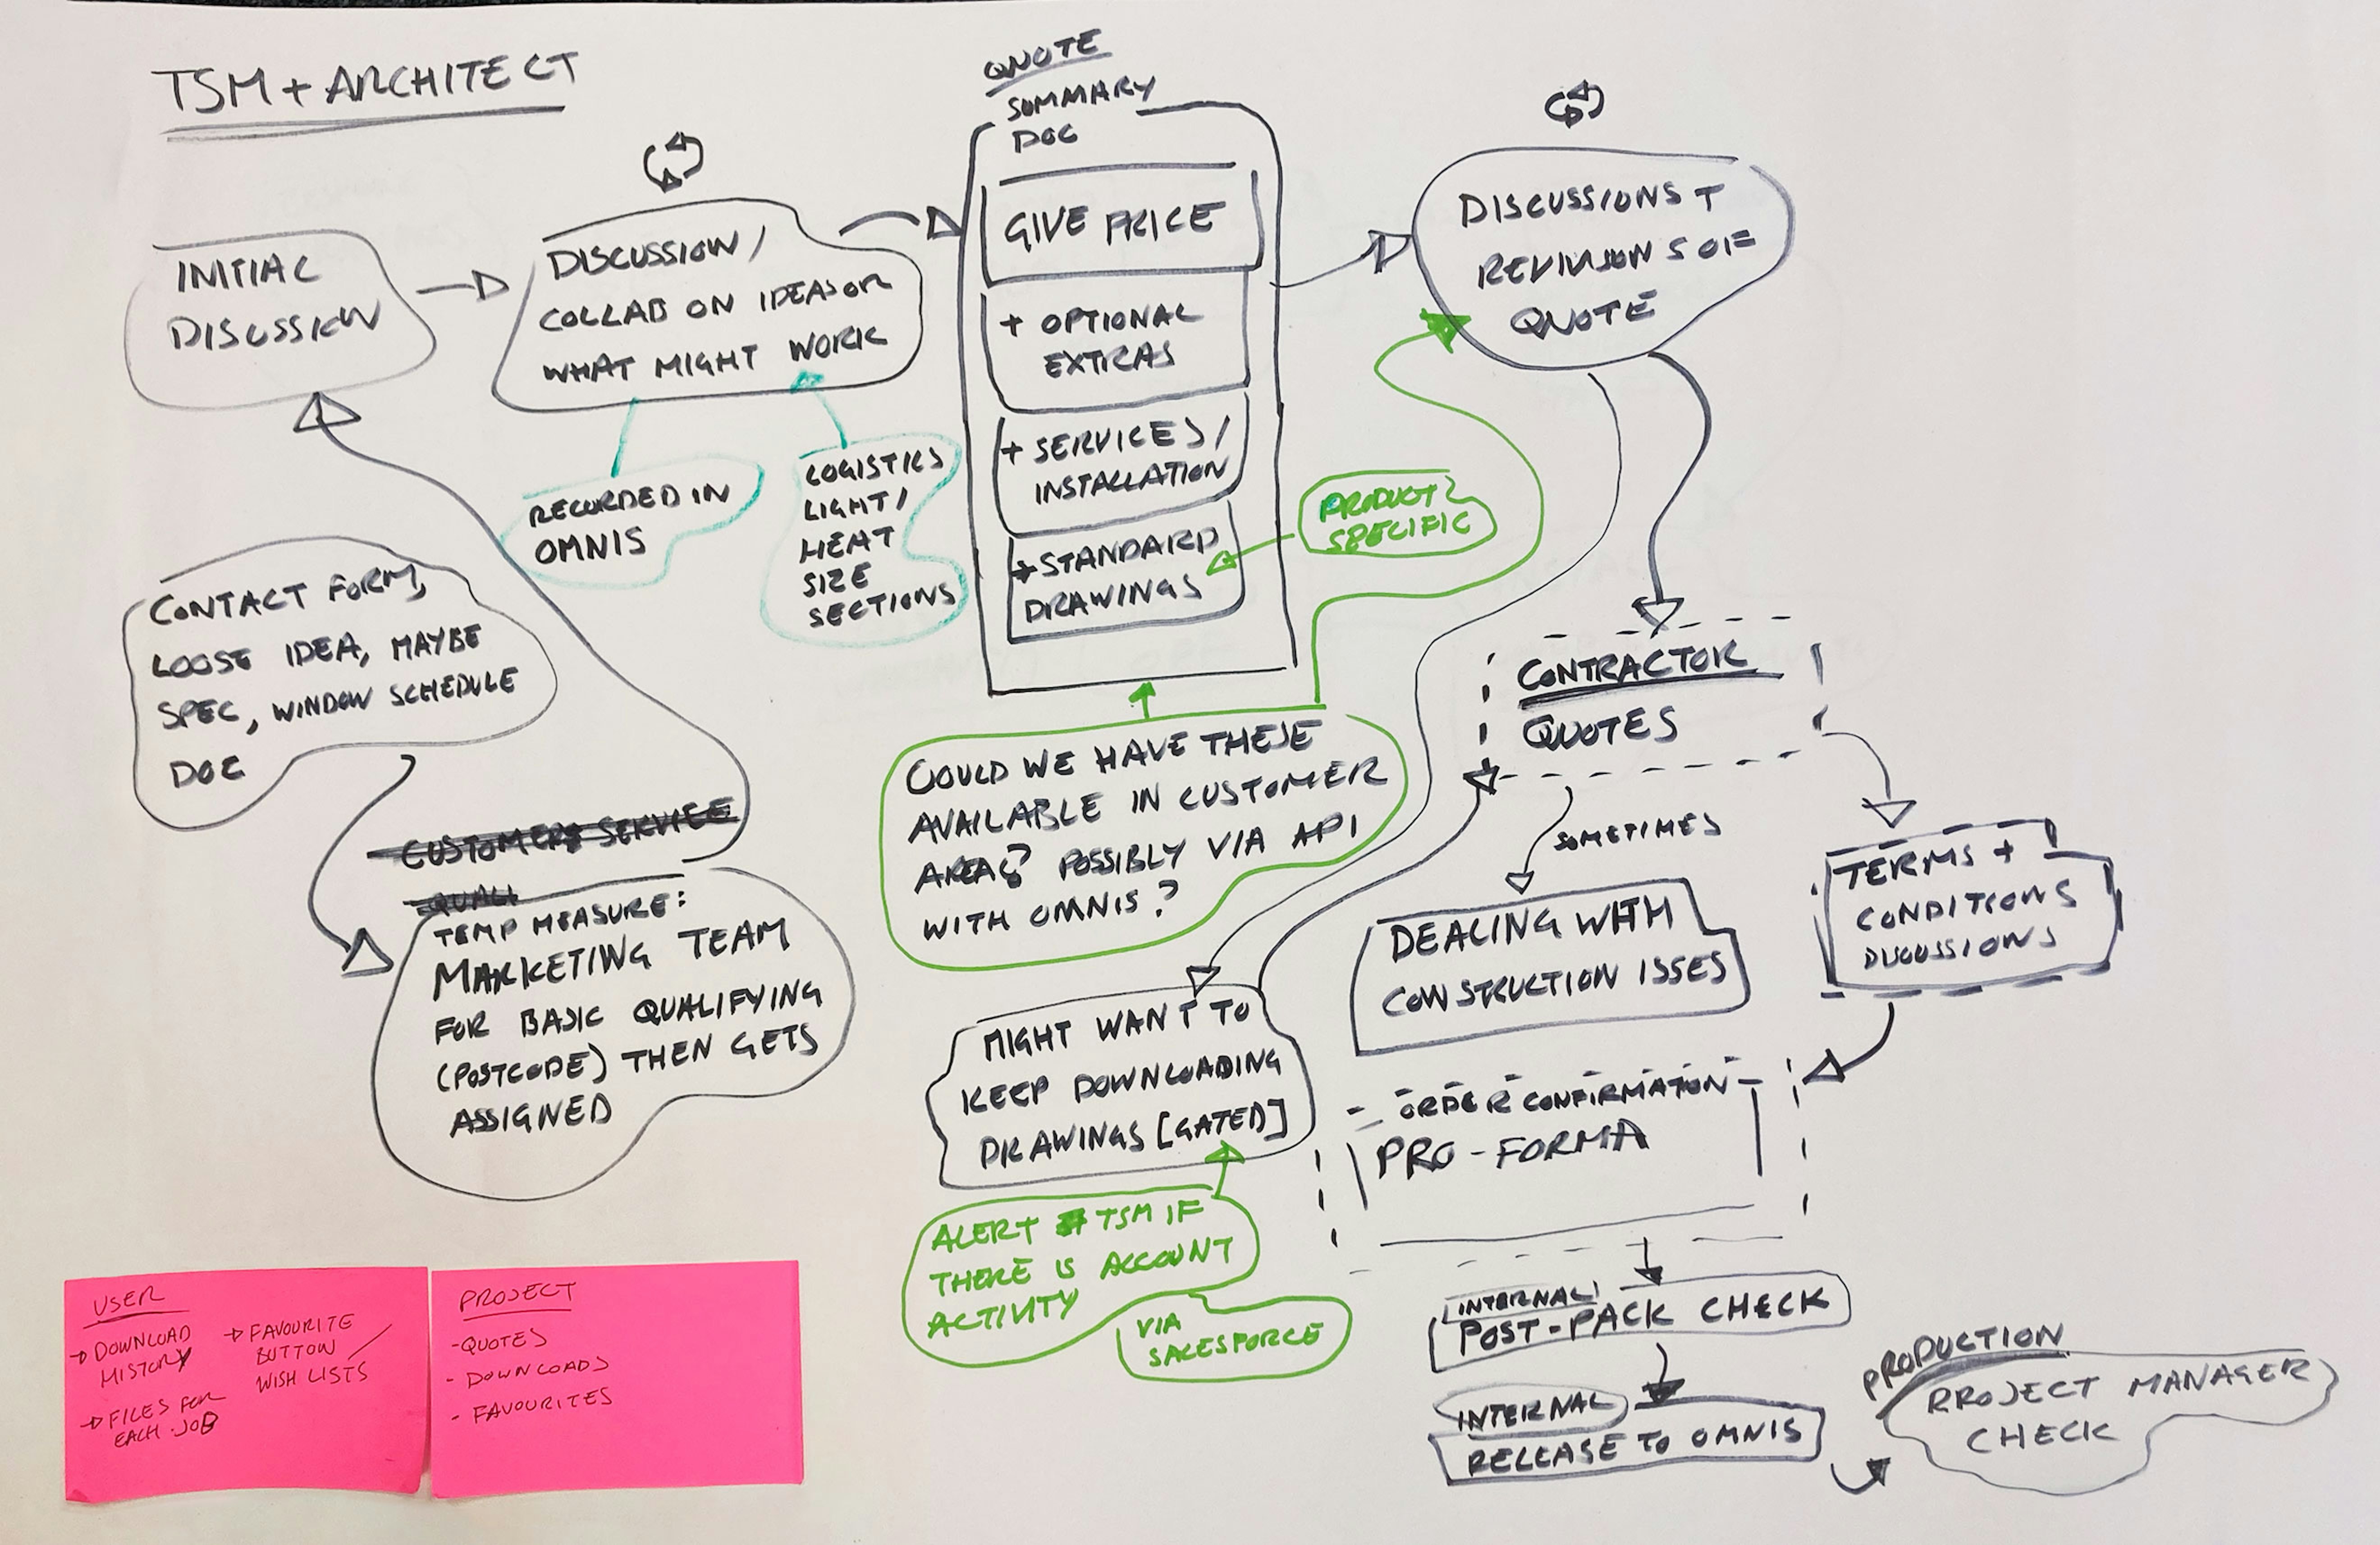 TSM + ARCHITECT
INITIAL
DISCUSSION
DISCUSSION/
COLLAB ON IDEAS OR
WHAT MIGHT WORK
RECORDED IN
OMNIS
LOGISTICS
LIGHT/
HEAT
SIZE
SECTIONS
QUOTE
SUMMARY
DOC
GIVE PRICE
+ OPTIONAL
EXTRAS
+ SERVICES/
INSTALLATION
+ STANDARD
DRAWINGS
PRODUCT
SPECIFIC
DISCUSSIONS +
REVISIONS OF
QUOTE
CONTACT FORM,
LOOSE IDEA, MAYBE
SPEC, WINDOW SCHEDULE
DOC
CUSTOMER SERVICE
QUALI
TEMP MEASURE:
MARKETING TEAM
FOR BASIC QUALIFYING
(POSTCODE) THEN GETS
ASSIGNED
COULD WE HAVE THESE
AVAILABLE IN CUSTOMER
AREA? POSSIBLY VIA API
WITH OMNIS?
CONTRACTOR
QUOTES
SOMETIMES
DEALING WITH
CONSTRUCTION ISSES
TERMS +
CONDITIONS
DISCUSSIONS
MIGHT WANT TO
KEEP DOWNLOADING
DRAWINGS [GATED]
ALERT TSM IF
THERE IS ACCOUNT
ACTIVITY
VIA
SALESFORCE
ORDER CONFIRMATION
PRO-FORMA
INTERNAL
POST-PACK CHECK
INTERNAL
RELEASE TO OMNIS
PRODUCTION
PROJECT MANAGER
CHECK
USER
→ DOWNLOAD
HISTORY
→ FILES FOR
EACH JOB
→ FAVOURITE
BUTTON /
WISH LISTS
PROJECT
- QUOTES
- DOWNLOADS
- FAVOURITES